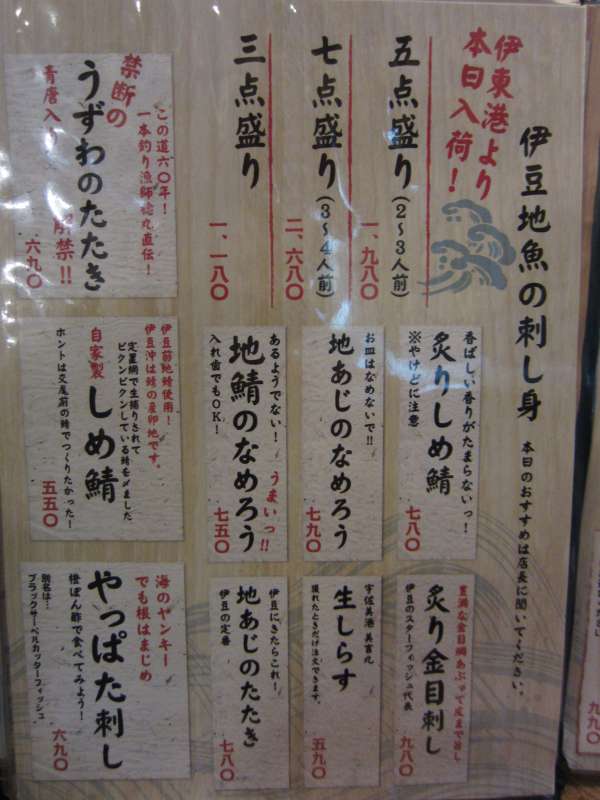 伊豆地魚の刺し身
本日のおすすめは店長に聞いてください。
伊東港より
本日入荷!
五点盛り(2〜3人前)
一、九八〇
七点盛り(3〜4人前)
二、六八〇
三点盛り
一、一八〇
この道六〇年!
一本釣り漁師
丸直伝!
禁断の
うずわのたたき
青唐入り
解禁!!
六九〇
香ばしい香りがたまらないっ!
炙りしめ鯖
※やけどに注意
七八〇
お皿はなめないで!!
地あじのなめろう
七九〇
あるようでない!
うまいっ!!
地鯖のなめろう
入れ歯でもOK!
七五〇
伊豆前地鯖使用!
伊豆沖は鯖の産卵地です。
定置網で生捕りされて
ピクンピクンしている鯖を〆ました
自家製
しめ鯖
ホントは交尾前の鯖でつくりたかった!
五五〇
豊満な金目鯛あぶって皮まで旨し
炙り金目刺し
伊豆のスターフィッシュ代表
九八〇
宇佐美港
丸
獲れたときだけ注文できます。
生しらす
五九〇
伊豆にきたらこれ!
地あじのたたき
伊豆の定番
七八〇
海のヤンキー
でも根はまじめ
やっぱた刺し
橙ぽん酢で食べてみよう!
別名は…
ブラックサーベルカッターフィッシュ
六九〇
九九〇